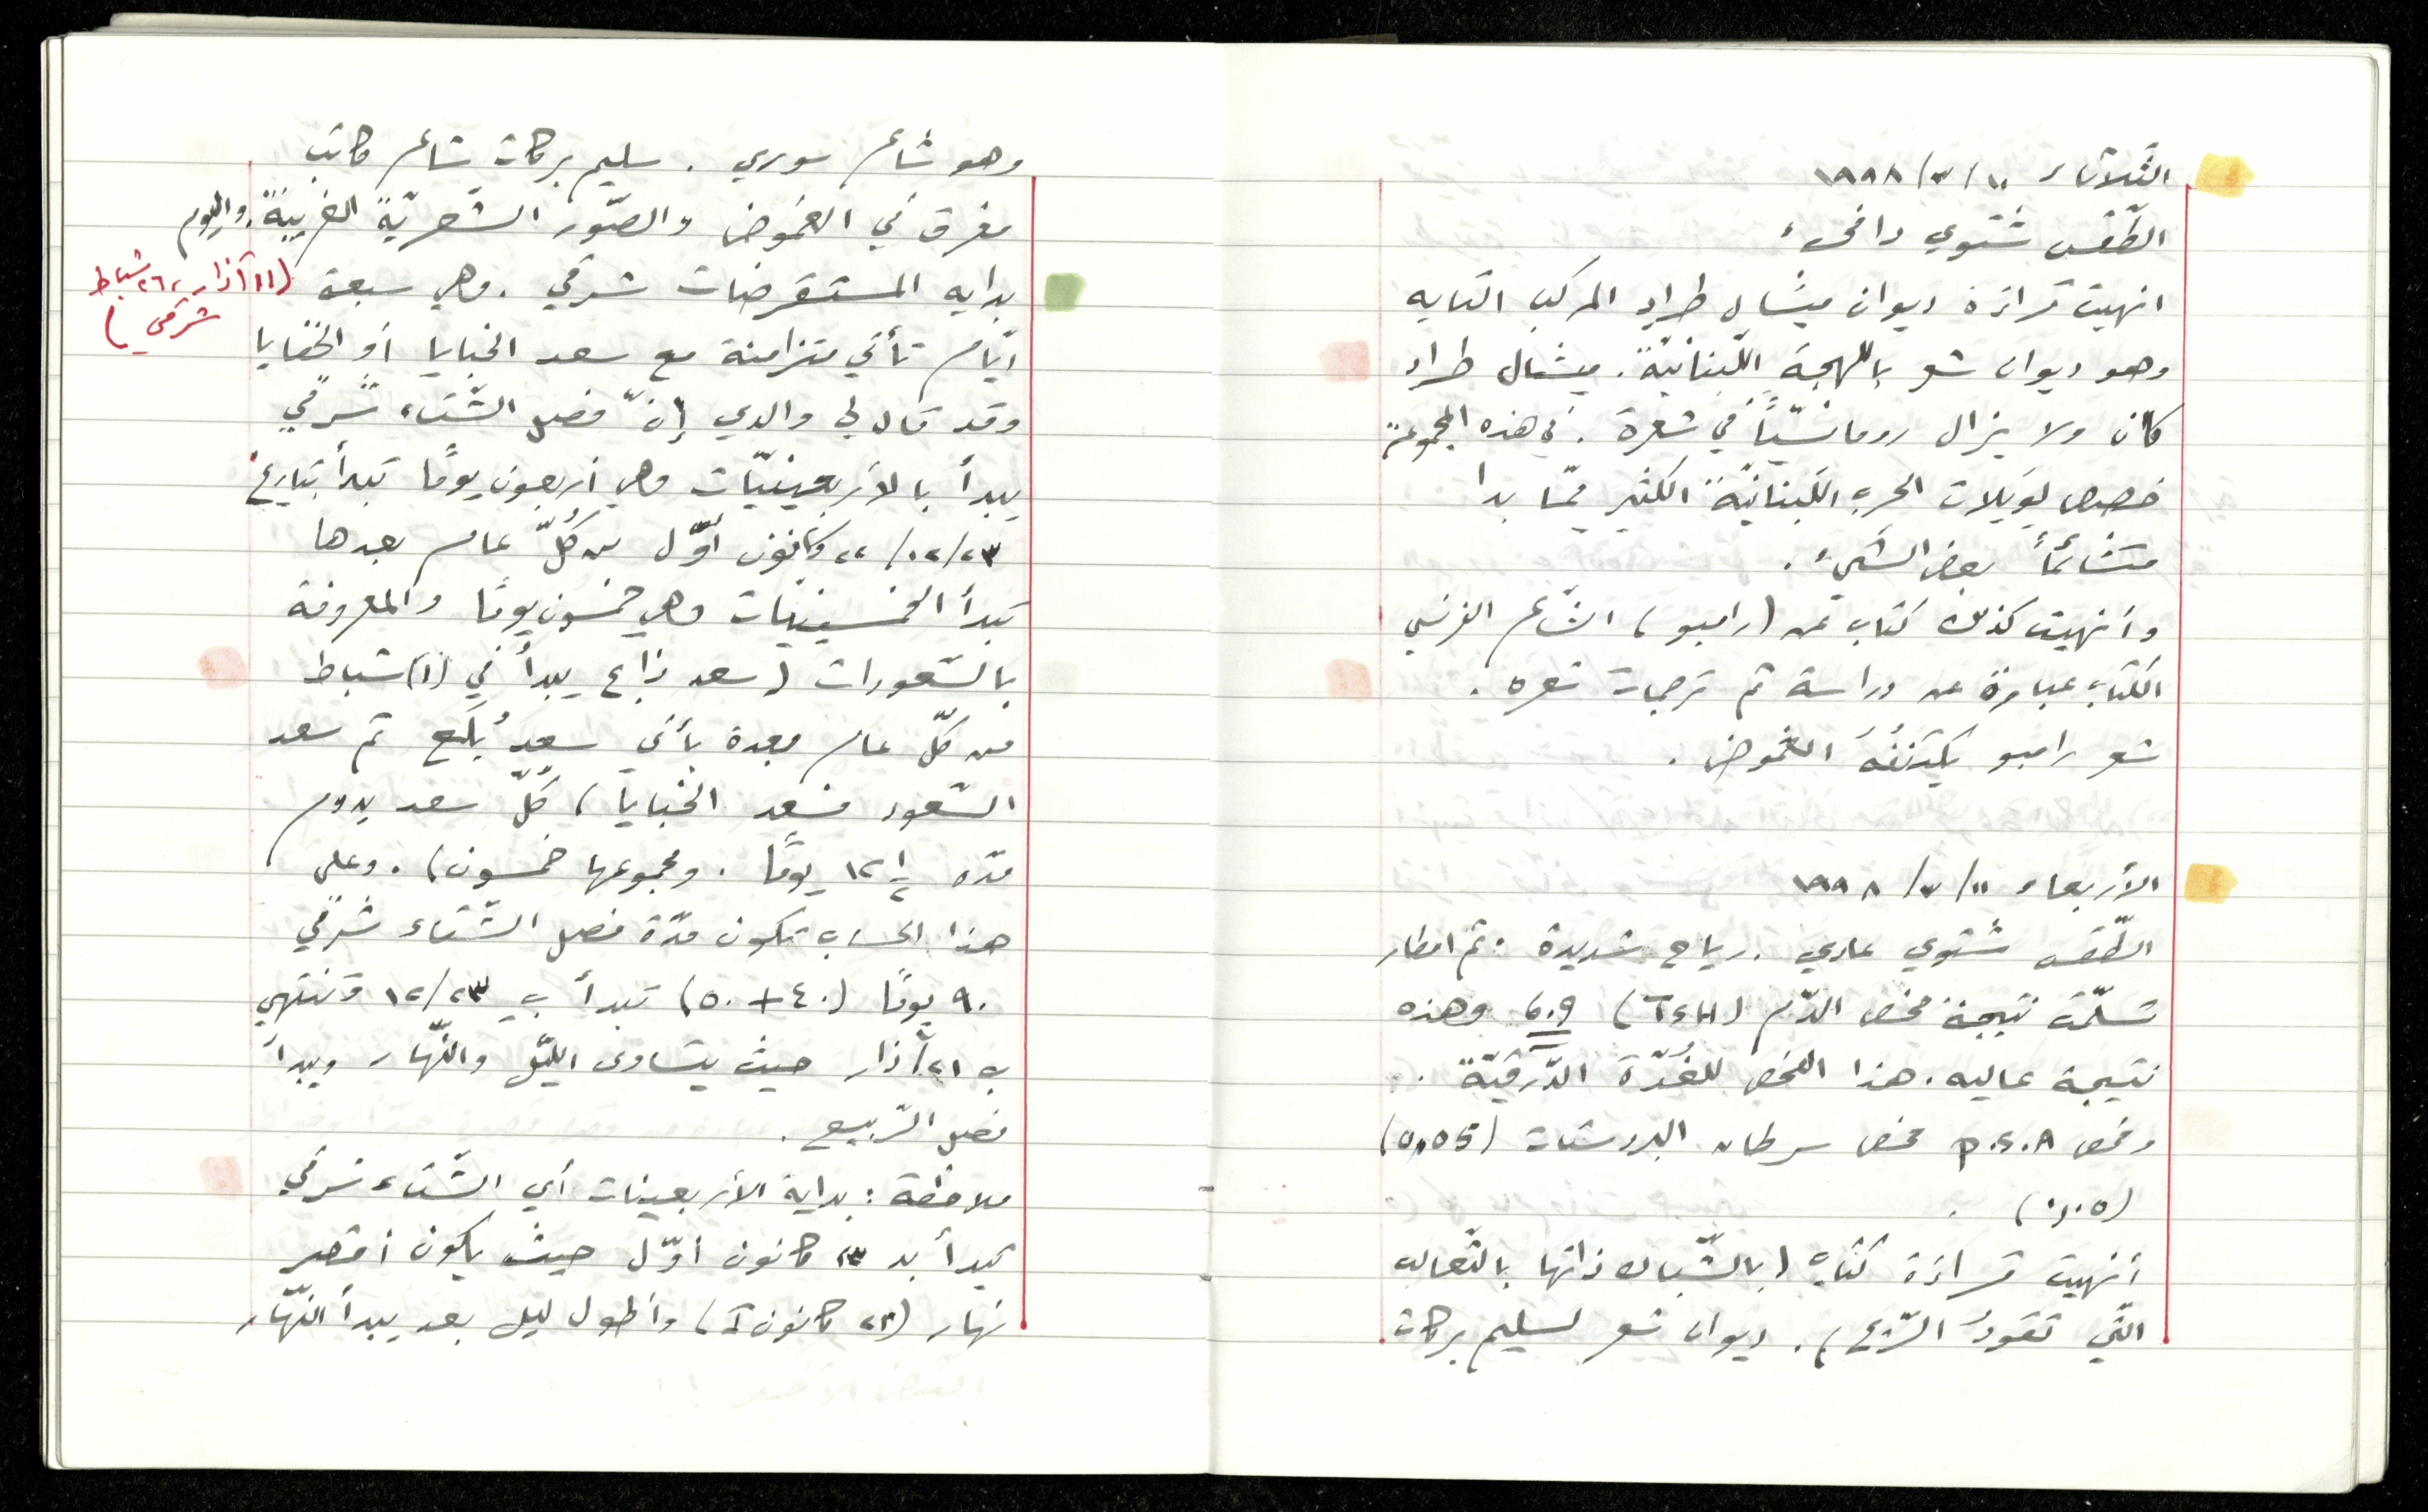 الثّلاثاء ١٠/٣/١٩٩٨
الطّقس شتوي دافىء
انهيت قراءة ديوان ميشال طراد المركب التايه
وهو ديوان شعر باللهجة اللّبنانيّة. ميشال طراد
كان ولا يزال رومانسّياً في شعرة. في هذه المجموعة
خصص لويلات الحرب اللّبنانيّة الكثير ممّا بدا
متشائماً بعض الشّيء.
وأنهيت كذلك كتاب عن (رامبو) الشّاعر الفرنسي
الكتاب عبارة عن دراسة ثم ترجمات شعره.
شعر رامبو يكتنفُهُ الغموض.
الأربعاء ١١/٣/١٩٩٨
الطّقس شتوي عادي. رياح شديدة: ثم امطار
تسلّمت نتيجة فحص الدّم (TSH) 6.9 وهذه
نتيجة عاليه. هذا الفحص للغُدّة الدّرقيّة.
وفحص P.S.A فحص سرطان البروستات (0,05)
(٠,٠٥).
أنهيت قراءة كتاب (بالشّباك ذاتها بالثّعالب
الّتي تقودُ الرّيح). ديوان شعر لسليم بركات
وهو شاعر سوري. سليم بركات شاعر كاتب
مغرق في الغموض والصّور الشّعريّة الغريبة. واليوم
بدايه المستقرضات شرقي. وهي سبعة (١١ آذار، ٢٦ شباط
شرقي)
ايّام تأتي متزامنة مع سعد الخبايا أو الخفايا
وقد قال لي والدي إنّ فصل الشّتاء شرقي
يبدأ بالأربعينيّات وهي أربعون يوماً تبدأ بتاريخ
٢٣/١٢/ ٢٢ كانون أوّل من كُلّ عام بعدها
تبدأ الخمسينيّات وهي خمسون يوماً والمعروفة
بالسّعودات (سعد ذابح يبدأ في (١) شباط
من كلّ عام وبعدة يأتي سعدُ بُلَع ثم سعد
السّعود فسعد الخبايا) كُلّ سعد يدوم
مدّه ١٢ ١/٢ يوماً. ومجموعها خمسون). وعلى
هذا الحساب تكون مدّة فصل الشّتاء شرقي
٩٠ يوماً (٤٠ + ٥٠) تبدأ بِ ٢٣/١٢ وتنتهي
بِ ٢١ آذار حيث يتساوى اللّيل والنّهار ويبدأ
فصل الرّبيع.
ملاحظة: بداية الأربعينات أي الشّتاء شرقي
تبدأ بـ ٢٣ كانون أوّل حيث يكون أقصر
نهار (٢٢ كانون ١) وأطول ليل بعد يبدأ النّهار